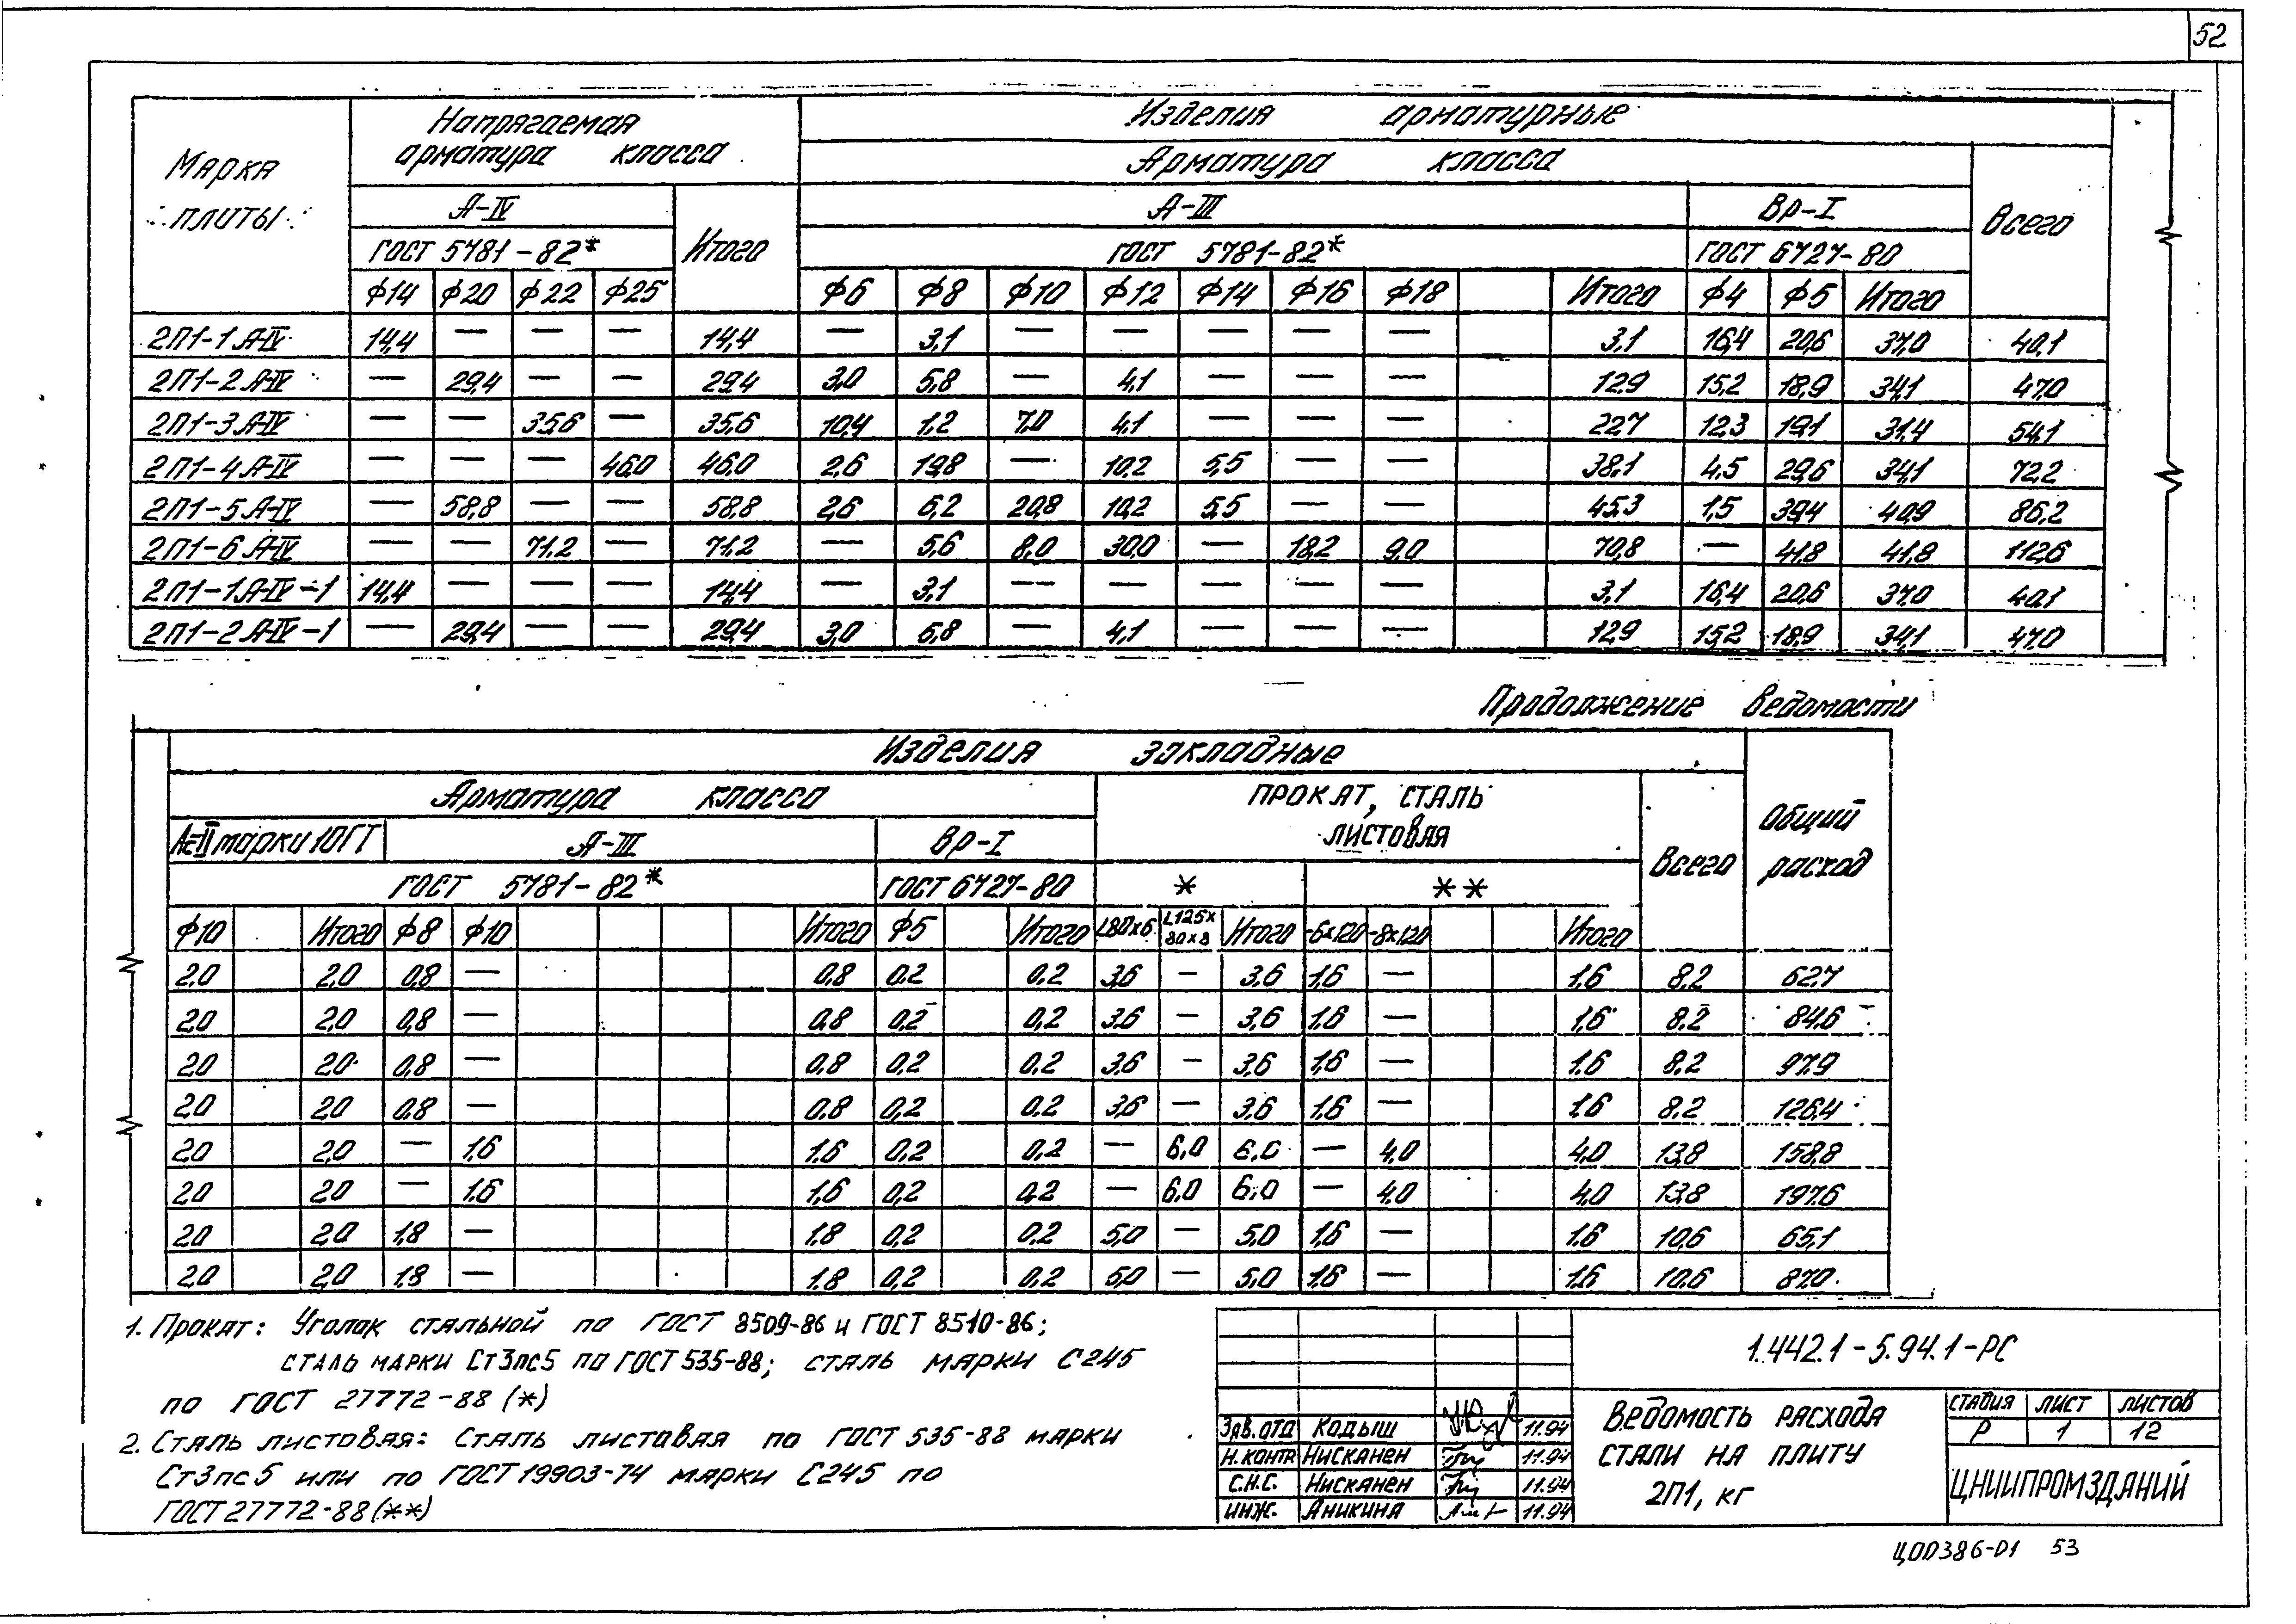 52
Марка плиты | Напрягаемая арматура класса | Изделия арматурные
Арматура класса | Всего
А-IV | Итого | А-III | Вр-I
ГОСТ 5781-82* | ГОСТ 5781-82* | ГОСТ 6727-80
ϕ14 | ϕ20 | ϕ22 | ϕ25 | ϕ6 | ϕ8 | ϕ10 | ϕ12 | ϕ14 | ϕ16 | ϕ18 | Итого | ϕ4 | ϕ5 | Итого
2П1-1А-IV | 14,4 | — | — | — | 14,4 | — | 3,1 | — | — | — | — | — | 3,1 | 16,4 | 20,6 | 37,0 | 40,1
2П1-2А-IV | — | 29,4 | — | — | 29,4 | 3,0 | 5,8 | — | 4,1 | — | — | — | 12,9 | 15,2 | 18,9 | 34,1 | 47,0
2П1-3А-IV | — | — | 35,6 | — | 35,6 | 10,4 | 1,2 | 7,0 | 4,1 | — | — | — | 22,7 | 12,3 | 19,1 | 31,4 | 54,1
2П1-4А-IV | — | — | — | 46,0 | 46,0 | 2,6 | 19,8 | — | 10,2 | 5,5 | — | — | 38,1 | 4,5 | 29,6 | 34,1 | 72,2
2П1-5А-IV | — | 58,8 | — | — | 58,8 | 2,6 | 6,2 | 20,8 | 10,2 | 5,5 | — | — | 45,3 | 1,5 | 39,4 | 40,9 | 86,2
2П1-6А-IV | — | — | 71,2 | — | 71,2 | — | 5,6 | 8,0 | 30,0 | — | 18,2 | 9,0 | 70,8 | — | 41,8 | 41,8 | 112,6
2П1-1А-IV-1 | 14,4 | — | — | — | 14,4 | — | 3,1 | — | — | — | — | — | 3,1 | 16,4 | 20,6 | 37,0 | 40,1
2П1-2А-IV-1 | — | 29,4 | — | — | 29,4 | 3,0 | 5,8 | — | 4,1 | — | — | — | 12,9 | 15,2 | 18,9 | 34,1 | 47,0
Продолжение ведомости
Изделия закладные | Общий расход
Арматура класса | Прокат, сталь листовая | Всего
Ас-II марки 10ГТ | А-III | Вр-I
ГОСТ 5781-82* | ГОСТ 6727-80 | * | **
ϕ10 | Итого | ϕ8 | ϕ10 | Итого | ϕ5 | Итого | L80x6 | L125x80x8 | Итого | -6x120 | -8x120 | Итого
2,0 | 2,0 | 0,8 | — | 0,8 | 0,2 | 0,2 | 3,6 | — | 3,6 | 1,6 | — | 1,6 | 8,2 | 62,7
2,0 | 2,0 | 0,8 | — | 0,8 | 0,2 | 0,2 | 3,6 | — | 3,6 | 1,6 | — | 1,6 | 8,2 | 84,6
2,0 | 2,0 | 0,8 | — | 0,8 | 0,2 | 0,2 | 3,6 | — | 3,6 | 1,6 | — | 1,6 | 8,2 | 97,9
2,0 | 2,0 | 0,8 | — | 0,8 | 0,2 | 0,2 | 3,6 | — | 3,6 | 1,6 | — | 1,6 | 8,2 | 126,4
2,0 | 2,0 | — | 1,6 | 1,6 | 0,2 | 0,2 | — | 6,0 | 6,0 | — | 4,0 | 4,0 | 13,8 | 158,8
2,0 | 2,0 | — | 1,6 | 1,6 | 0,2 | 0,2 | — | 6,0 | 6,0 | — | 4,0 | 4,0 | 13,8 | 197,6
2,0 | 2,0 | 1,8 | — | 1,8 | 0,2 | 0,2 | 5,0 | — | 5,0 | 1,6 | — | 1,6 | 10,6 | 65,1
2,0 | 2,0 | 1,8 | — | 1,8 | 0,2 | 0,2 | 5,0 | — | 5,0 | 1,6 | — | 1,6 | 10,6 | 87,0
1. Прокат: Уголок стальной по ГОСТ 8509-86 и ГОСТ 8510-86;
сталь марки Ст3пс5 по ГОСТ 535-88; сталь марки С245
по ГОСТ 27772-88 (*)
2. Сталь листовая: Сталь листовая по ГОСТ 535-88 марки
Ст3пс5 или по ГОСТ 19903-74 марки С245 по
ГОСТ 27772-88 (**)
1.442.1-5.94.1-РС
Зав. отд | Кодыш | 11.94
Н. контр | Нисканен | 11.94
С.Н.С. | Нисканен | 11.94
Инж. | Аникина | 11.94
Ведомость расхода
стали на плиту
2П1, кг
Стадия | Лист | Листов
Р | 1 | 12
ЦНИИПРОМЗДАНИЙ
Ц00386-01 53